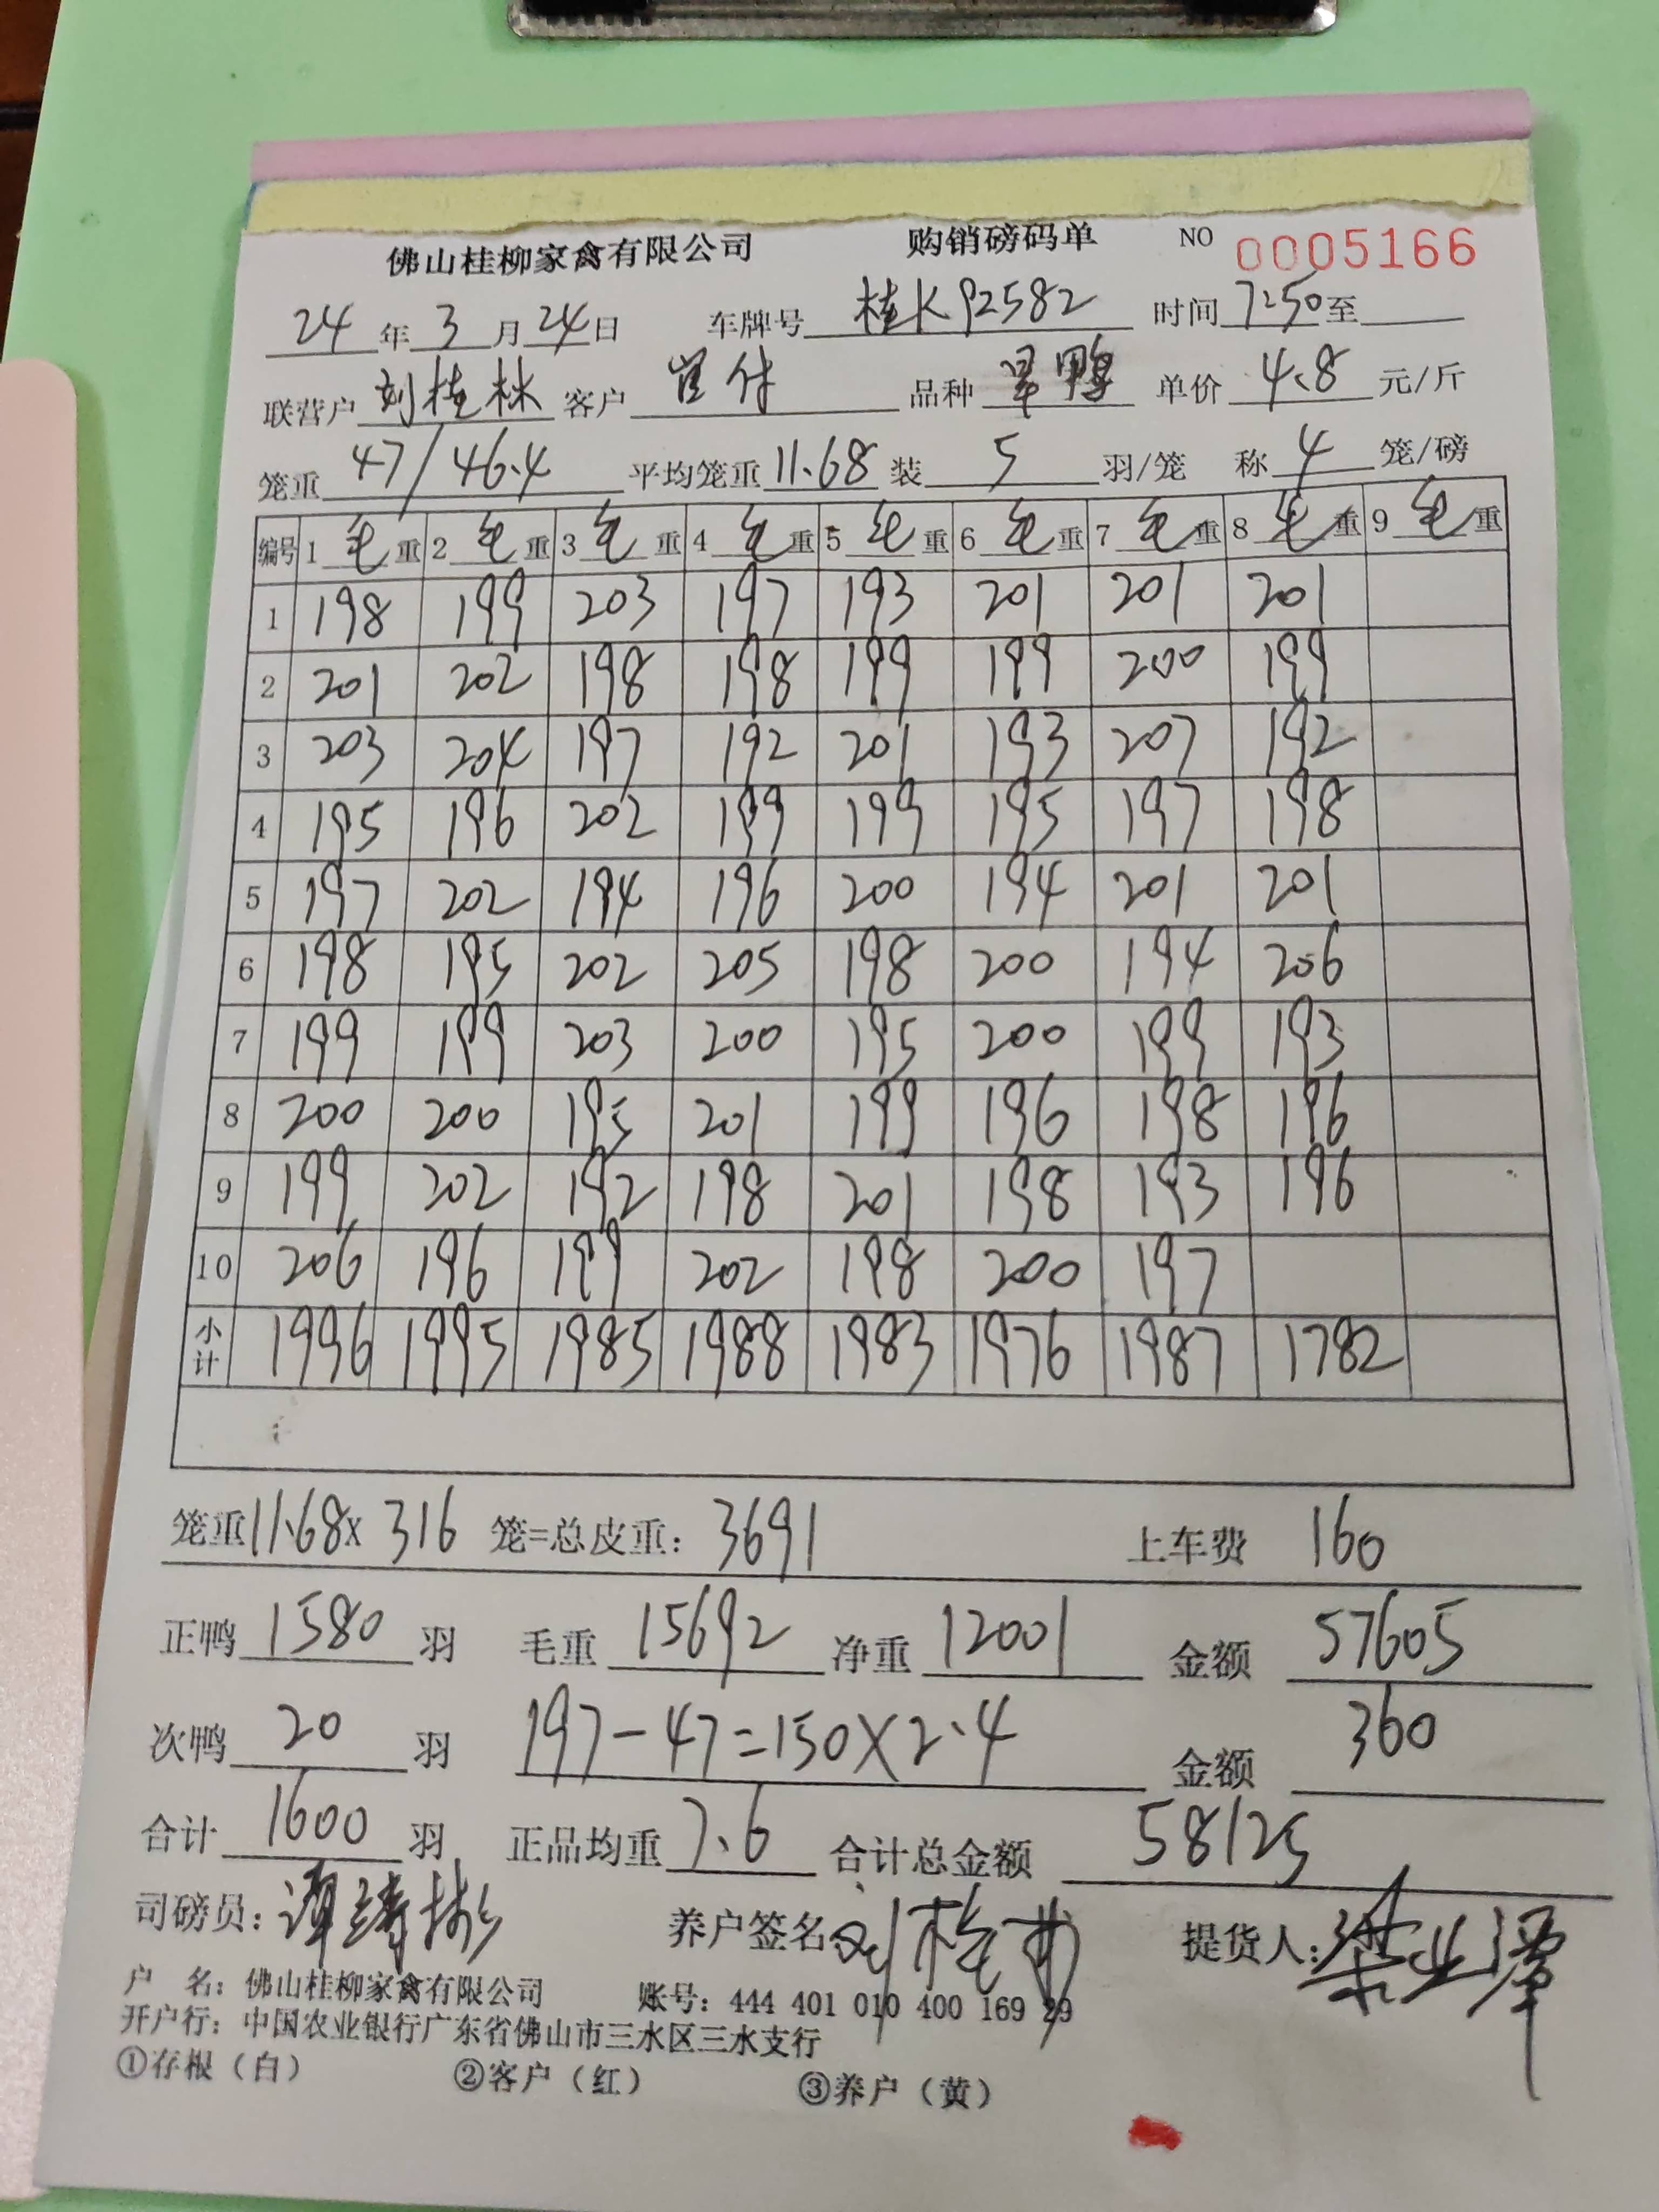 佛山桂柳家禽有限公司 购销磅码单 NO 0005166
24年3月24日 车牌号 桂KP2582 时间 7:50至
联营户 刘桂林 客户 品种 旱鸭 单价 4.8 元/斤
笼重 47/46.4 平均笼重 11.68 装 5 羽/笼 称 4 笼/磅
编号 1毛重 2毛重 3毛重 4毛重 5毛重 6毛重 7毛重 8毛重 9毛重
1 198 199 203 197 193 201 201 201
2 201 202 198 198 199 199 200 199
3 203 204 197 192 201 193 207 192
4 195 196 202 199 199 195 197 198
5 197 202 194 196 200 194 201 201
6 198 195 202 205 198 200 194 206
7 199 199 203 200 195 200 199 193
8 200 200 195 201 199 196 198 196
9 199 202 192 198 201 198 193 196
10 206 196 199 202 198 200 197
小计 1996 1995 1985 1988 1983 1976 1987 1782
笼重11.68x 316 笼=总皮重: 3691 上车费 160
正鸭 1580 羽 毛重 15692 净重 12001 金额 57605
次鸭 20 羽 197-47=150X2.4 金额 360
合计 1600 羽 正品均重 7.6 合计总金额 58125
司磅员: 养户签名: 提货人: 梁业泽
户 名: 佛山桂柳家禽有限公司 账号: 444 401 010 400 169 29
开户行: 中国农业银行广东省佛山市三水区三水支行
①存根（白） ②客户（红） ③养户（黄）